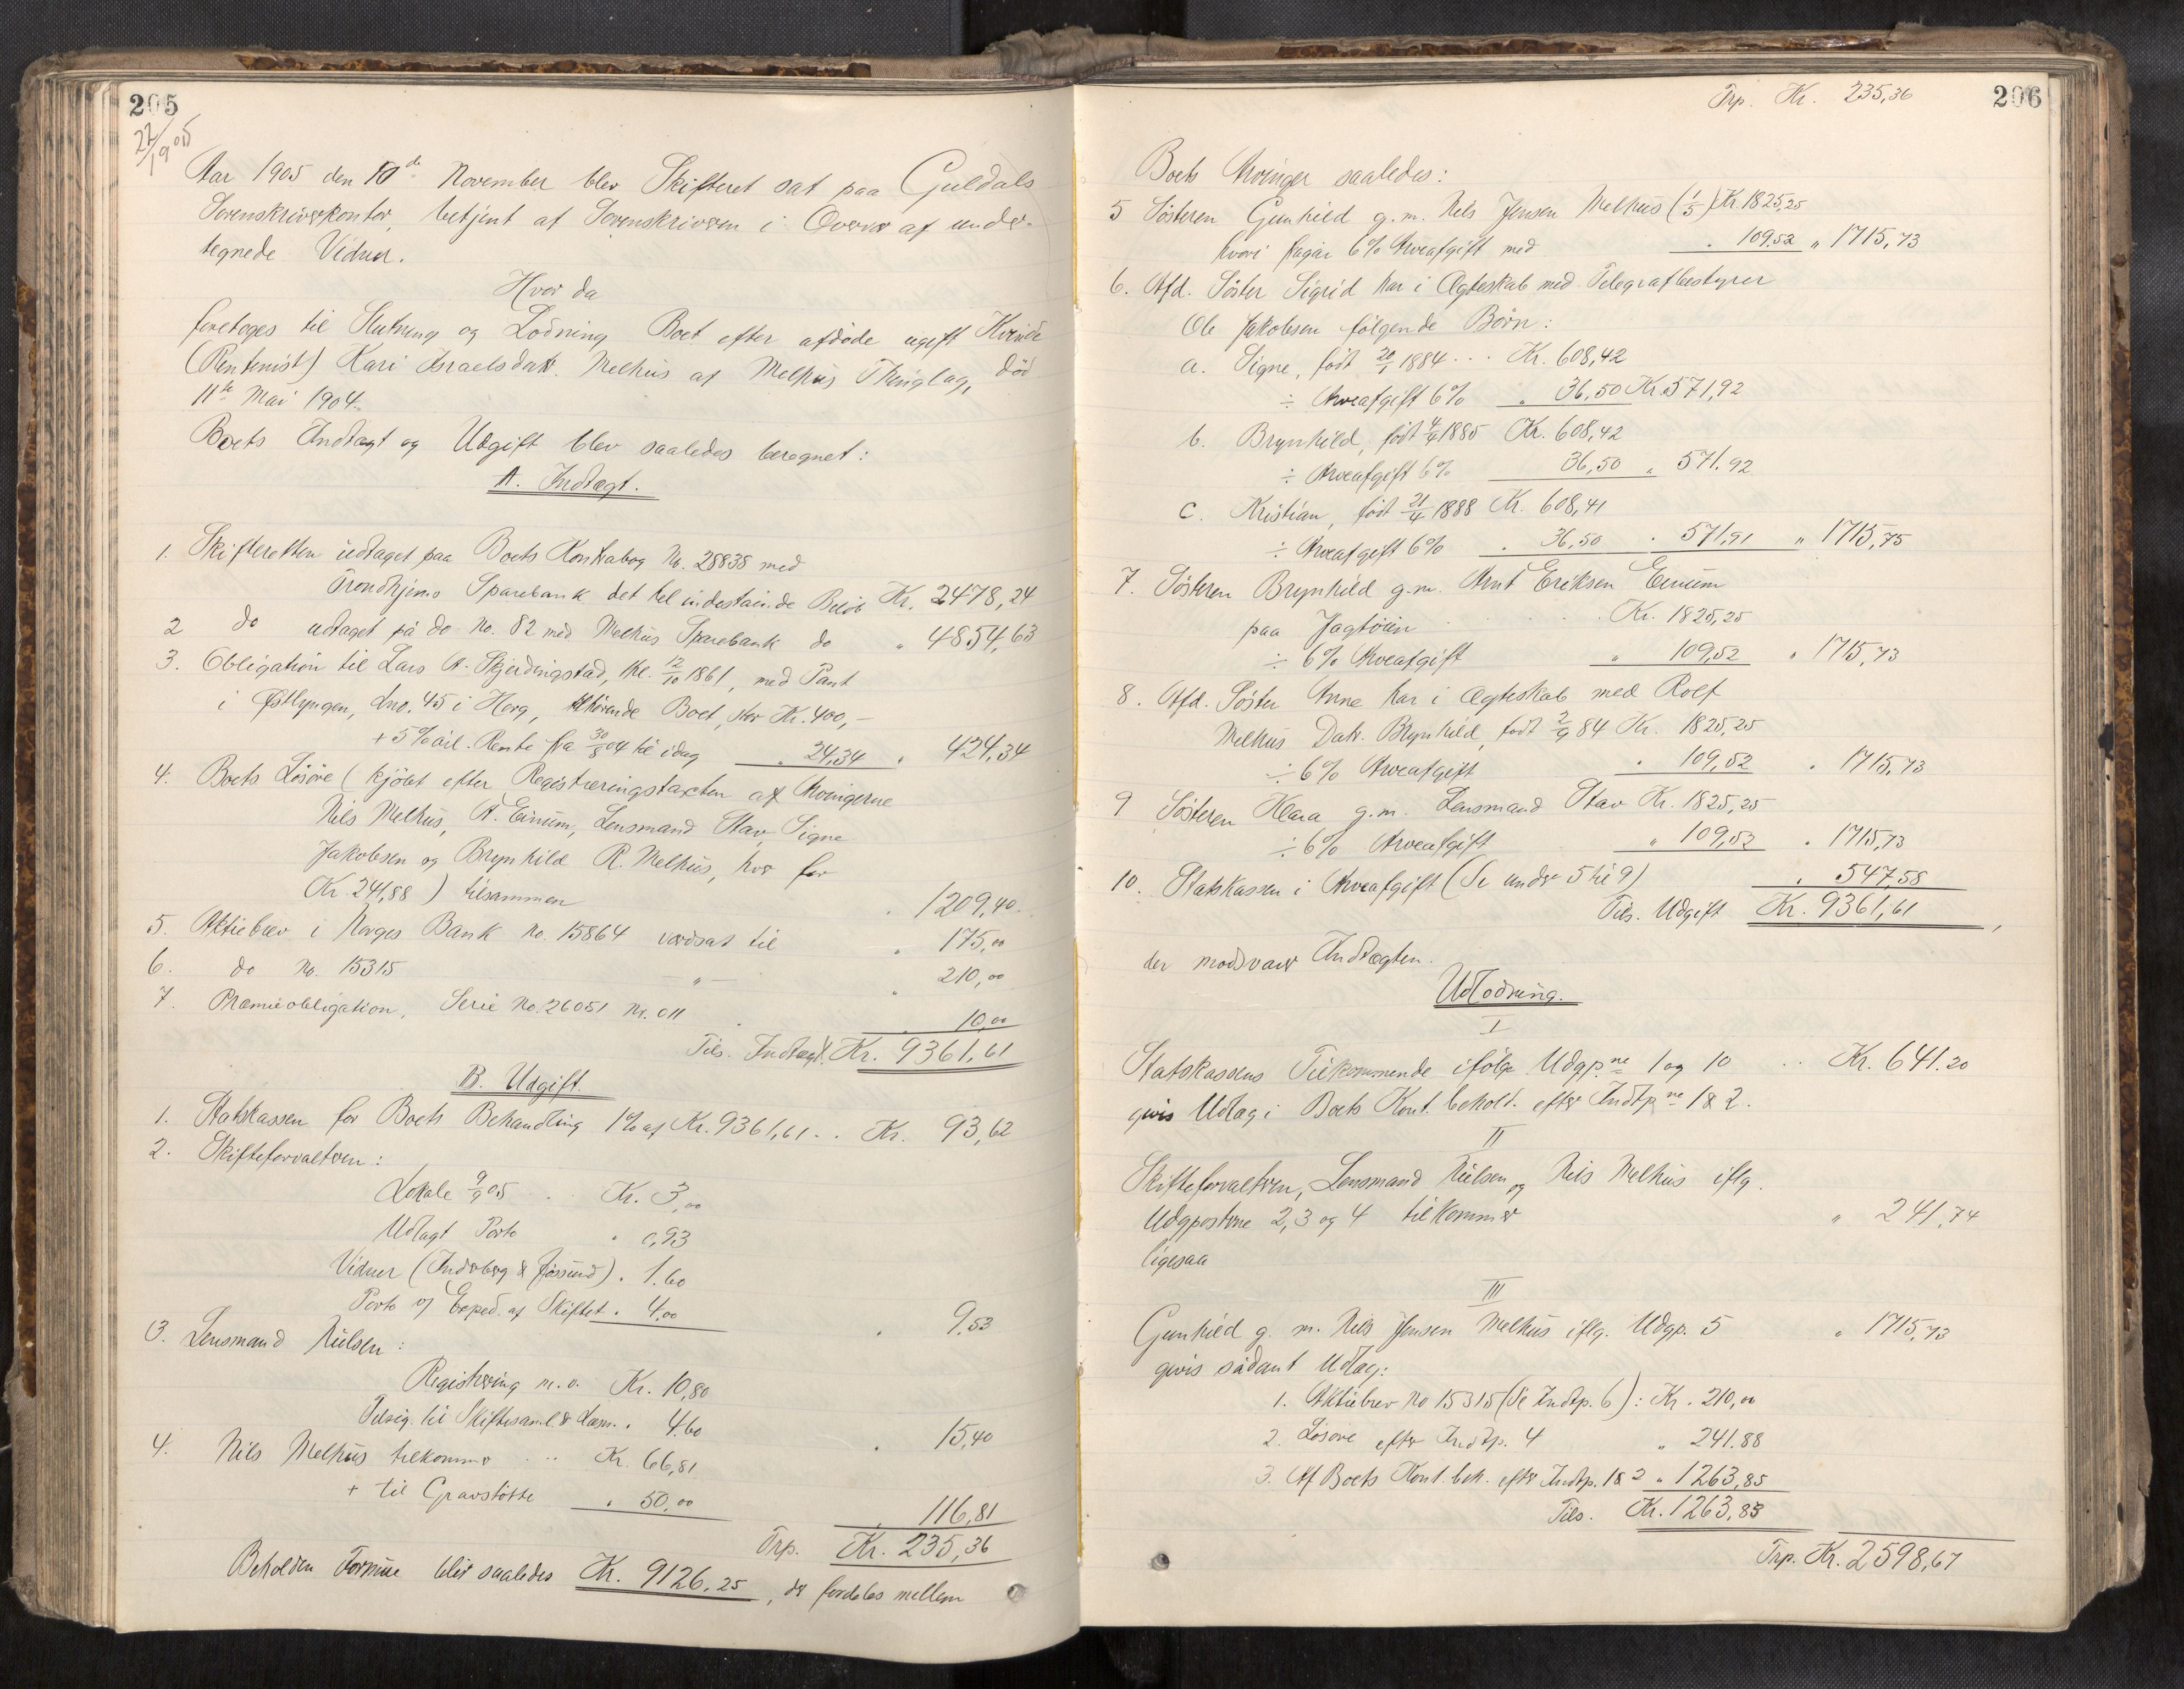 205
27/19 05
Aar 1905 den 10de November blev Skifteret sat paa Guldals
Sorenskriverkontor, betjent af Sorenskriveren i Overvær af under-
tegnede Vidner.
Hvor da
foretoges til Slutning og Lodning Boet efter afdøde ugift Kvinde
(Rentenist) Kari Israelsdatt. Melhus af Melhus Thinglag, død
11te Mai 1904.
Boets Indtægt og Udgift blev saaledes beregnet:
A. Indtægt.
1. Skifteretten udtaget paa Boets Kontrabog No. 28838 med
Trondhjems Sparebank det tel indestaaende Beløb Kr. 2478,24
2 do udtaget på do No. 82 med Melhus Sparebank do " 4854,63
3. Obligation til Lars A. Skjerdingstad, thl. 12/10 1861, med Pant
i Østlyngen, Lno. 45 i Horg, tilhørende Boet, stor Kr. 400,-
+ 5% aarl. Rente fra 30/8 04 til idag " 24,34 " 424,34
4. Boets Løsøre (kjøbt efter Registreringstaxten af Arvingerne
Nils Melhus, A. Einum, Lensmand Stav, Signe
Jakobsen og Brynhild R. Melhus, hver for
Kr. 241,88) tilsammen " 1209,40
5. Aktiebrev i Norges Bank No. 15864 værdsat til " 175,00
6. do No. 15315 " " 210,00
7. Præmieobligation, Serie No. 26051 Nr. 011 " 10,00
Tils. Indtægt. Kr. 9361,61
B. Udgift.
1. Statskassen for Boets Behandling 1% af Kr. 9361,61 .. Kr. 93,62
2. Skifteforvalteren:
Lokale 9/9 05 .. Kr. 3,00
Udlagt Porto " 0,93
Vidner (Inderberg & Jøssund) " 1.60
Porto og Exped. af Skiftet " 4,00 " 9,53
3. Lensmand Nielsen:
Registrering m.v. Kr. 10,80
Tilsig. til Skiftesaml. & " 4.60 " 15,40
4. Nils Melhus tilkommer ... Kr. 66,81
+ til Gravstøtte " 50,00 " 116,81
Trp. Kr. 235,36
Beholden Formue blir saaledes Kr. 9126,25, der fordeles mellem
206
Trp. Kr. 235,36
Boets Arvinger saaledes:
5 Søsteren Gunhild g.m. Nils Jensen Melhus (1/5) Kr. 1825,25
hvori fragår 6% Arveafgift med " 109,52 " 1715,73
6. Afd. Søster Sigrid har i Ægteskab med Telegrafbestyrer
Ole Jakobsen følgende Børn:
a. Signe, født 20/1 1884 ... Kr. 608,42
÷ Arveafgift 6% " 36,50 Kr. 571,92
b. Brynhild, født 4/4 1885 Kr. 608,42
÷ Arveafgift 6% 36,50 " 571.92
c. Kristian, født 21/4 1888 Kr. 608,41
÷ Arveafgift 6% " 36,50 " 571,91 " 1715,75
7. Søsteren Brynhild g.m. Arnt Eriksen Einum
paa Jagtøien . . . . . Kr. 1825,25
÷ 6% Arveafgift " 109,52 " 1715,73
8. Afd. Søster Anne har i Ægteskab med Rolf
Melhus Datt. Brynhild, født 2/9 84 Kr. 1825,25
÷ 6% Arveafgift " 109,52 " 1715,73
9 Søsteren Klara g.m. Lensmand Stav Kr. 1825,25
÷ 6% Arveafgift " 109,52 " 1715,73
10. Statskassen i Arveafgift (Se under 5 til 9) " 547,58
Tils. Udgift Kr. 9361,61,
der modsvarer Indtægten.
Udlodning.
I
Statskassens Tilkommende ifølge Udgp.ne 1 og 10 .. Kr. 641.20
givis Udlag i Boets Kont. behold. efter Indtp.ne 1 & 2.
II
Skifteforvalteren, Lensmand Nielsen og Nils Melhus iflg.
Udgpostene 2, 3 og 4 tilkommer " 241,74
ligesaa
III
Gunhild g. m. Nils Jensen Melhus iflg. Udgp. 5 " 1715,73
givis sådant Udlæg:
1. Aktiebrev No 15315 (Se Indtp. 6): Kr. 210,00
2. Løsøre efter Indtp. 4 " 241.88
3. Af Boets Kont. beh. efter Indtp. 1 & 2 " 1263,85
Tils. Kr. 1263,85
Trp. Kr. 2598,67